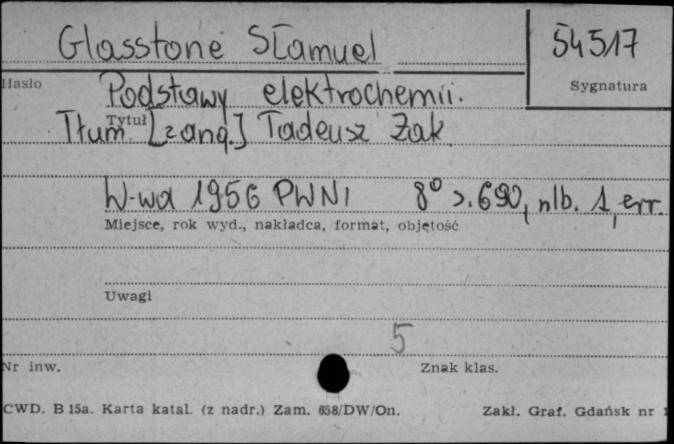 Glasstone S[amuel 54517
Hasło Sygnatura
Podstawy elektrochemii.
Tytuł
Tłum. [z ang.] Tadeusz Żak
W-wa 1956 PWN 8° s. 690, nlb. 1, err.
Miejsce, rok wyd., nakładca, format, objętość
Uwagi
5
Nr inw. Znak klas.
CWD. B 15a. Karta katal. (z nadr.) Zam. 658/DW/On. Zakł. Graf. Gdańsk nr 1